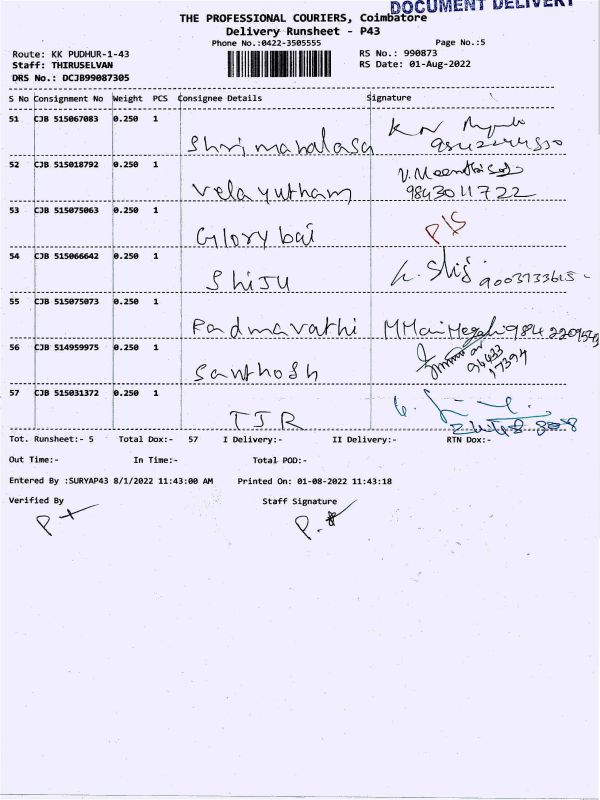 DOCUMENT DELIVERY
THE PROFESSIONAL COURIERS, Coimbatore
Delivery Runsheet - P43
Phone No.:0422-3505555 Page No.:5
Route: KK PUDHUR-1-43 RS No.: 990873
Staff: THIRUSELVAN RS Date: 01-Aug-2022
DRS No.: DCJB99087305
S No Consignment No Weight PCS Consignee Details Signature
51 CJB 515067083 0.250 1
Shri mahalasa
52 CJB 515018792 0.250 1
Velayutham 9843011722
53 CJB 515075063 0.250 1
Glory bai P/S
54 CJB 515066642 0.250 1
Shiju
55 CJB 515075073 0.250 1
Padmavathi
56 CJB 514959975 0.250 1
Santhosh 94433 17394
57 CJB 515031372 0.250 1
TJR
Tot. Runsheet:- 5 Total Dox:- 57 I Delivery:- II Delivery:- RTN Dox:-
Out Time:- In Time:- Total POD:-
Entered By :SURYAP43 8/1/2022 11:43:00 AM Printed On: 01-08-2022 11:43:18
Verified By Staff Signature